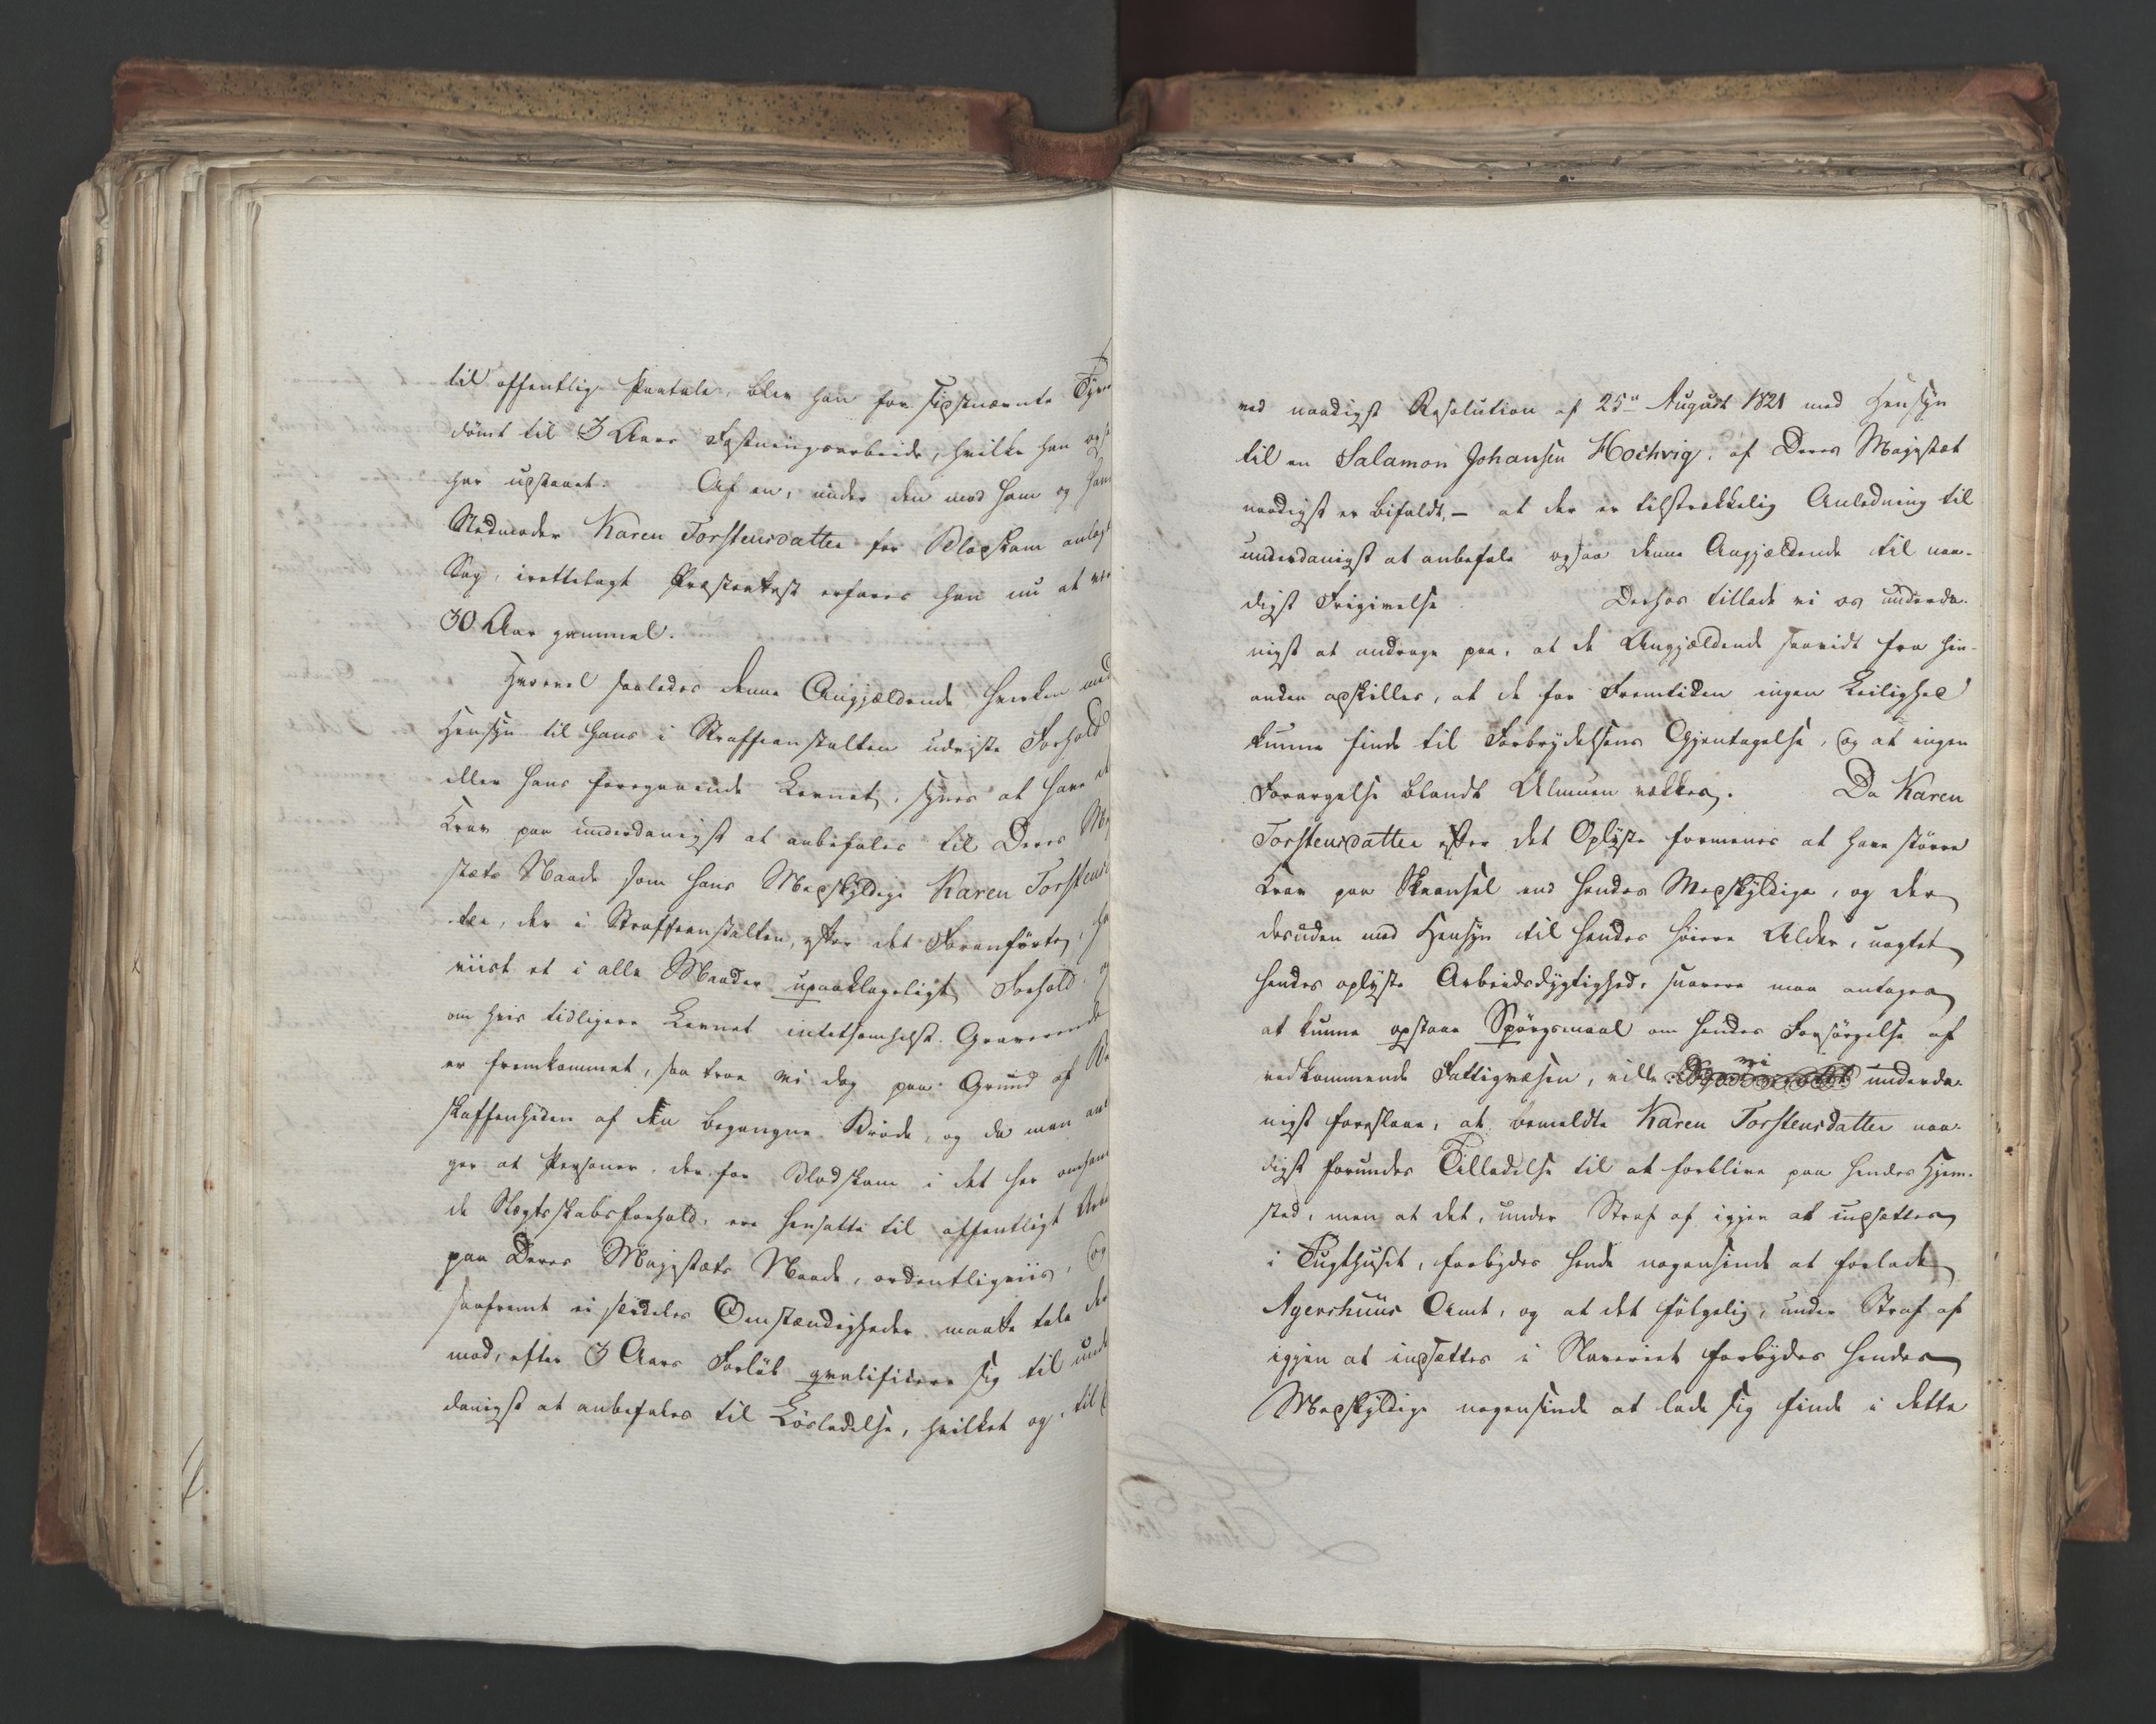 til offentlig Paatale, blev han for sidstnævnte Tyve
dømt til 3 Aars Fæstningsarbeide, hvilke han og
har udstaaet. Af en, under den mod ham og hans
Stedmoder Karen Torstensdatter for Blodskam anlagt
Sag, irettelagt Præsteattest erfares han nu at være
30 Aar gammel.
Hvorvel saaledes denne Angjældende hverken med
Hensyn til hans i Straffeanstalten udviste Forhold
eller hans foregaaende Levnet, synes at have et
Krav paa underdanigst at anbefales til Deres Ma
stæts Naade som hans Medskyldige Karen Torstensd
ter, der i Straffeanstalten, efter det Foranførte, ha
viist et i alle Maader upaaklageligt Forhold, og
om hvis tidligere Levnet intetsomhelst Graverende
er fremkommet, saa troe vi dog paa Grund af Be
skaffenheden af den begangne Brøde, og da man
ger at Personer, der for Blodskam i det her omhand
de Slægtskabsforhold, ere hensatte til offentligt Arbe
paa Deres Majestæts Naade, ordentligviis, og
saafremt ei særdeles Omstændigheder maatte tale der
mod, efter 3 Aars Forløb qvalificere sig til unde
danigst at anbefales til Løsladelse, hvilket og, til
ved naadigst Resolution af 25de August 1821 med Hensyn
til en Salamon Johansen Hochvig, af Deres Majestæt
naadigst er bifaldt, — at der er tilstrækkelig Anledning til
underdanigst at anbefale ogsaa denne Angjældende til naa-
digst Frigivelse Derhos tillade vi os underda-
nigst at andrage paa, at de Angjældende saavidt fra hin-
anden adskilles, at de for Fremtiden ingen Leilighed
kunne finde til Forbrydelsens Gjentagelse, og at ingen
Forargelse blandt Almuen vækkes. Da Karen
Torstensdatter efter det Oplyste formenes at have større
Krav paa Skaansel end hendes Medskyldige, og der
desuden med Hensyn til hendes høiere Alder, uagtet
hendes oplyste Arbeidsdygtighed, snarere maa antages
at kunne opstaae Spørgsmaal om hendes Forsørgelse af
vedkommende Fattigvæsen, ville vi underda-
nigst foreslaae, at bemeldte Karen Torstensdatter naa-
digst forundes Tilladelse til at forblive paa hendes Hjem-
sted, men at det, under Straf af igjen at indsættes
i Tugthuset, forbydes hende nogensinde at forlade
Agershuus Amt, og at det følgelig, under Straf af
igjen at indsættes i Slaveriet forbydes hendes
Medskyldige nogensinde at lade sig finde i dette